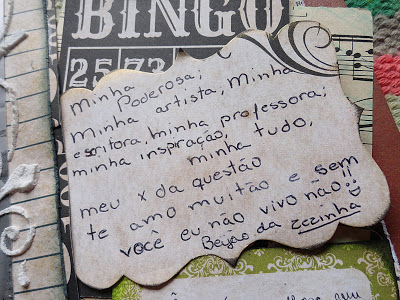 BINGO
25 73
Minha
Poderosa;
Minha artista, Minha
escritora, minha professora;
minha inspiração, tudo,
minha
meu x da questão
te amo muitão e sem
você eu não vivo não!!
Beijão da Zezinha